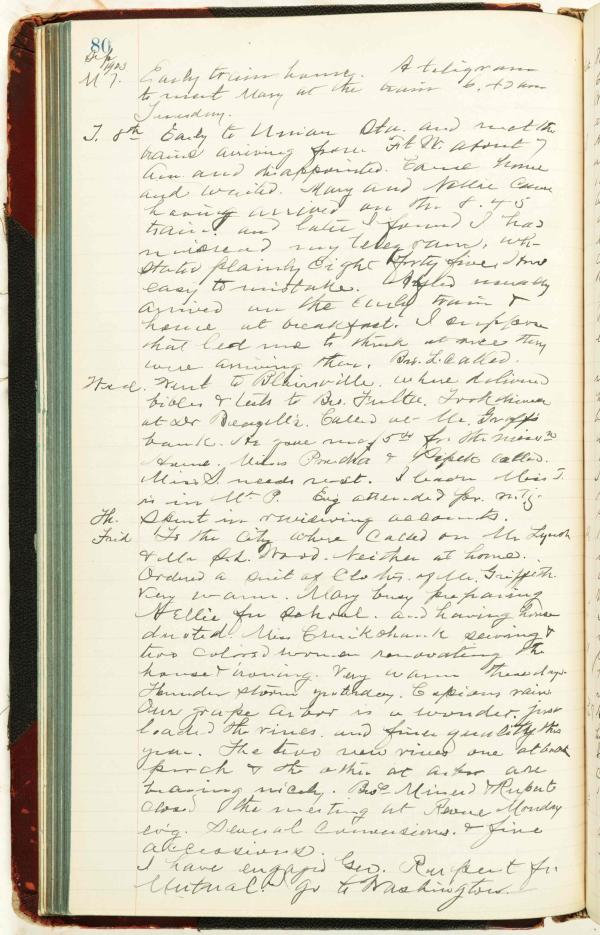 80
Sep
1903
M 7. Early train home. A telegram
to meet Mary at the train 6.45 am
Tuesday.
T. 8th Early to Union Sta. and met the
trains arriving from Ft W. about 7
am and disappointed. Came home
and waited. Mary and Nellie came
having arrived on the 8.45
train and later I found I had
misread my telegram, wh
stated plainly Eight forty five,
easy to mistake. usually
arrived on the early train &
home at breakfast. I suppose
that led me to think at once they
were arriving then. Bro. L. called.
Wed. Went to Blairsville, where delivered
bibles & tests to Bro. Took dinner
at Dr Called at Mr. Graff's
bank. He gave me 5th for the
Home. Misses & called.
Miss S needs rest. I learn Miss J.
is in Mt P. Evg attended pr. mtg.
Th. Spent in reviewing accounts.
Frid To the City where called on Mr Lynch
& Mr Wood. Neither at home.
Ordered a suit of clothes of Mr. Griffith.
Very warm. Mary busy preparing
Nellie for school. and having house
dusted. Miss Cruikshank sewing &
two colored women renovating the
house & ironing. Very warm these days.
Thunder storm yesterday. Copious rain
Our grape arbor is a wonder, just
loaded the vines. and finer quality this
year. The two new vines one at back
porch & the other at arbor are
bearing nicely. Bros Miner & Rupert
closed the meeting at Monday
evg. Several conversions. & five
accessions.
I have engaged Geo. Rupert for
Mutual. & go to Washington